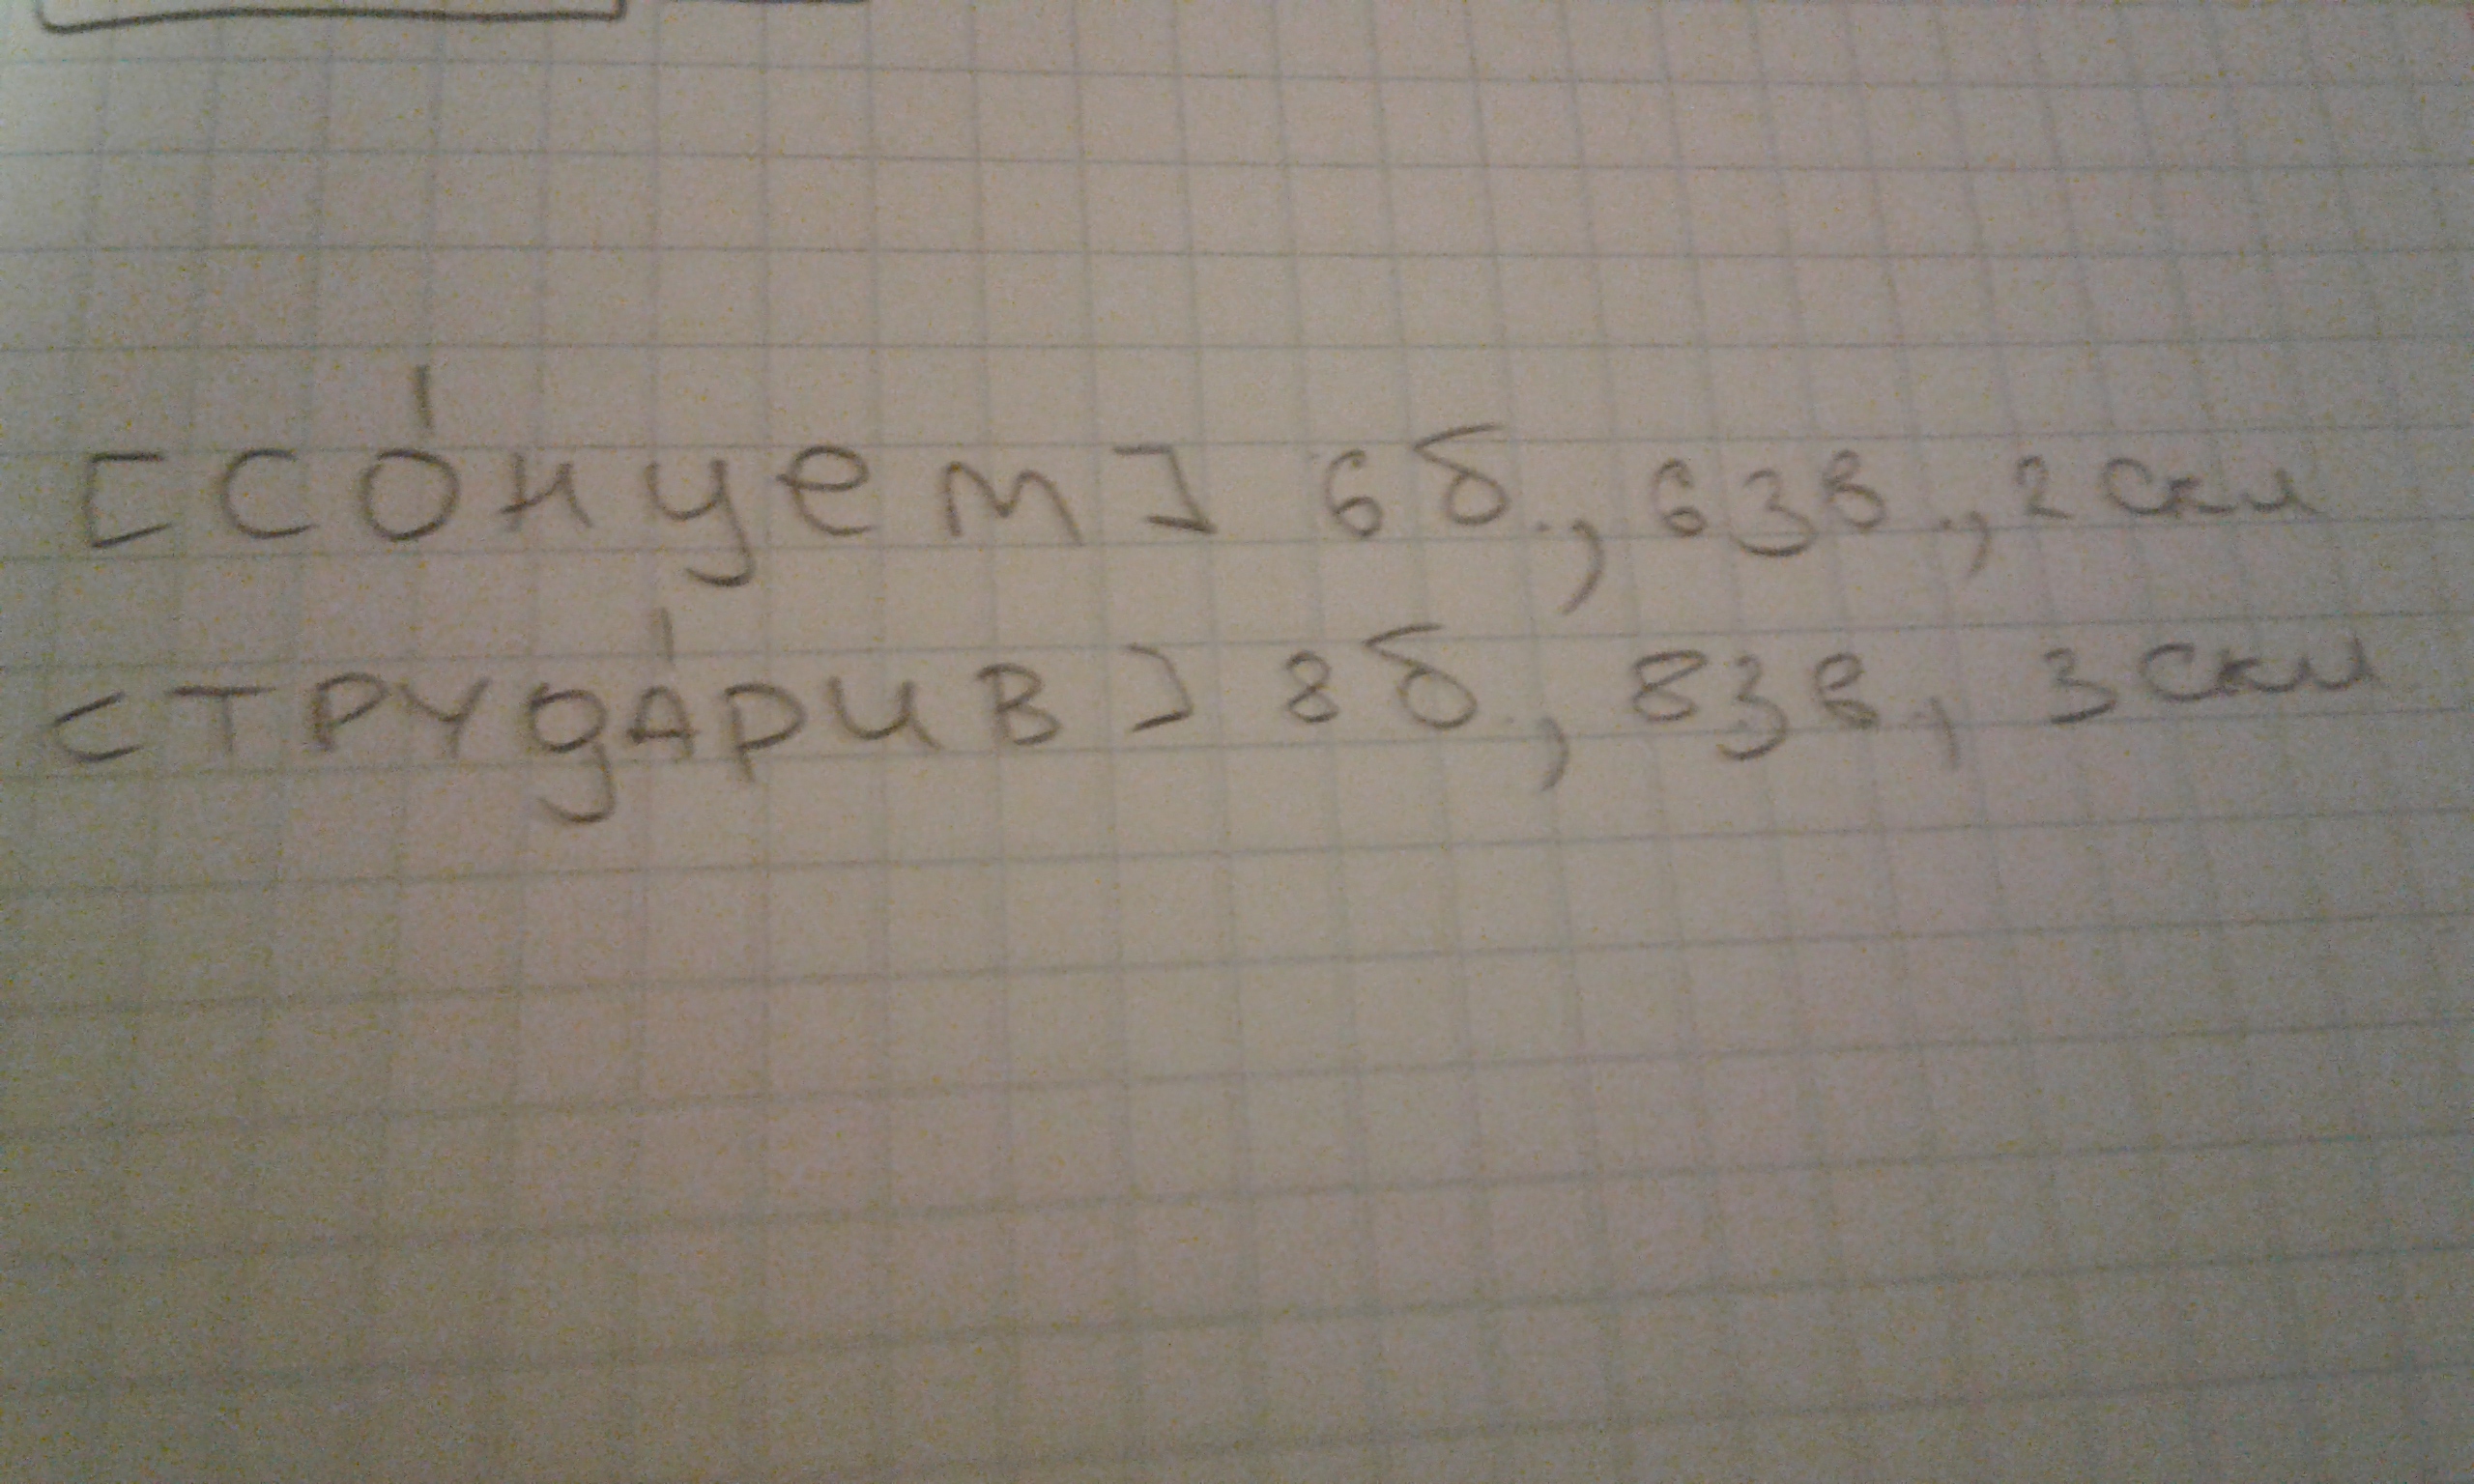 [сóнцем] 6 б., 6 зв., 2 скл
[ТРУдÁрив] 8 б., 8 зв, 3 скл